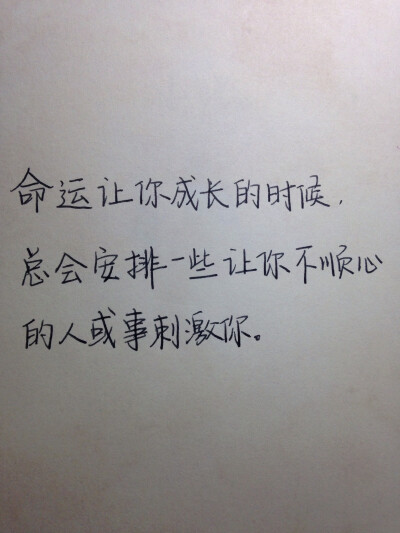 命运让你成长的时候,
总会安排一些让你不顺心
的人或事刺激你。